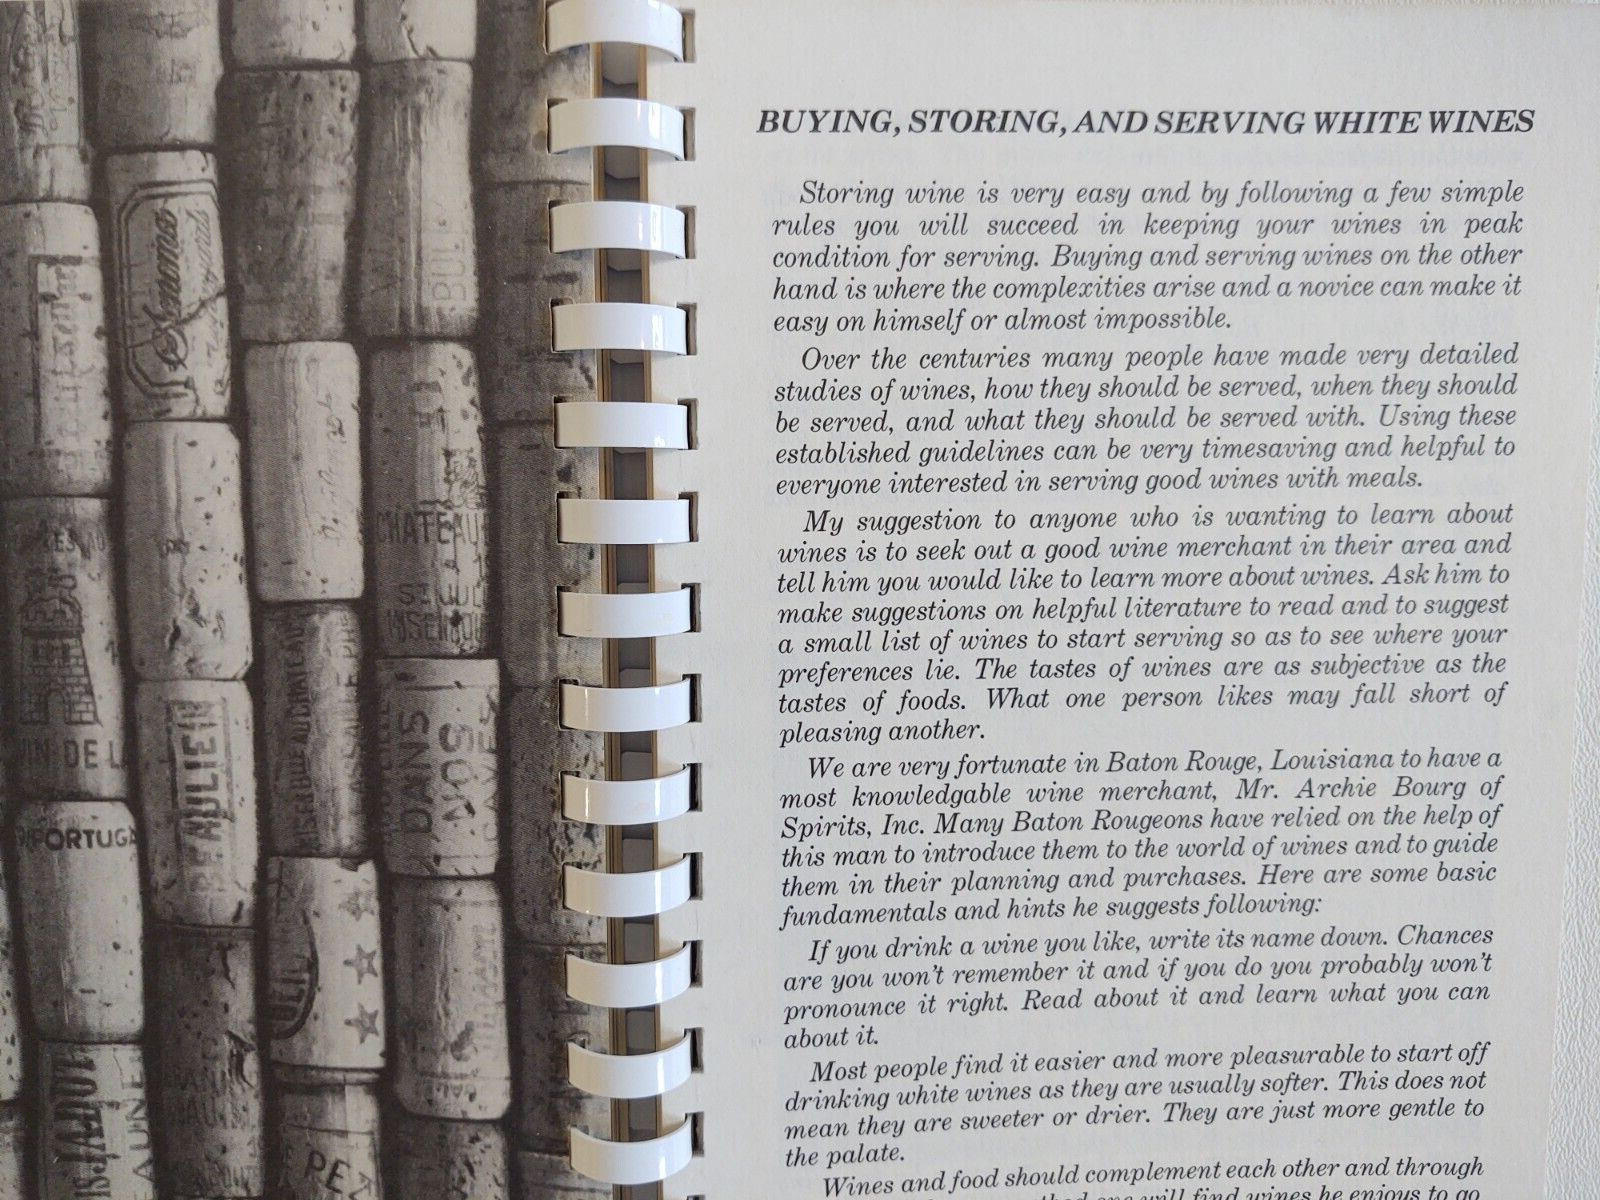 Sonoma
BUL
CHATEAU
VIN DE L
PAULIEN
DANS
NOS
PORTUGA
JADOT
BEAUNE
PE
BUYING, STORING, AND SERVING WHITE WINES
Storing wine is very easy and by following a few simple
rules you will succeed in keeping your wines in peak
condition for serving. Buying and serving wines on the other
hand is where the complexities arise and a novice can make it
easy on himself or almost impossible.
Over the centuries many people have made very detailed
studies of wines, how they should be served, when they should
be served, and what they should be served with. Using these
established guidelines can be very timesaving and helpful to
everyone interested in serving good wines with meals.
My suggestion to anyone who is wanting to learn about
wines is to seek out a good wine merchant in their area and
tell him you would like to learn more about wines. Ask him to
make suggestions on helpful literature to read and to suggest
a small list of wines to start serving so as to see where your
preferences lie. The tastes of wines are as subjective as the
tastes of foods. What one person likes may fall short of
pleasing another.
We are very fortunate in Baton Rouge, Louisiana to have a
most knowledgable wine merchant, Mr. Archie Bourg of
Spirits, Inc. Many Baton Rougeons have relied on the help of
this man to introduce them to the world of wines and to guide
them in their planning and purchases. Here are some basic
fundamentals and hints he suggests following:
If you drink a wine you like, write its name down. Chances
are you won't remember it and if you do you probably won't
pronounce it right. Read about it and learn what you can
about it.
Most people find it easier and more pleasurable to start off
drinking white wines as they are usually softer. This does not
mean they are sweeter or drier. They are just more gentle to
the palate.
Wines and food should complement each other and through
one will find wines he enjoys to go